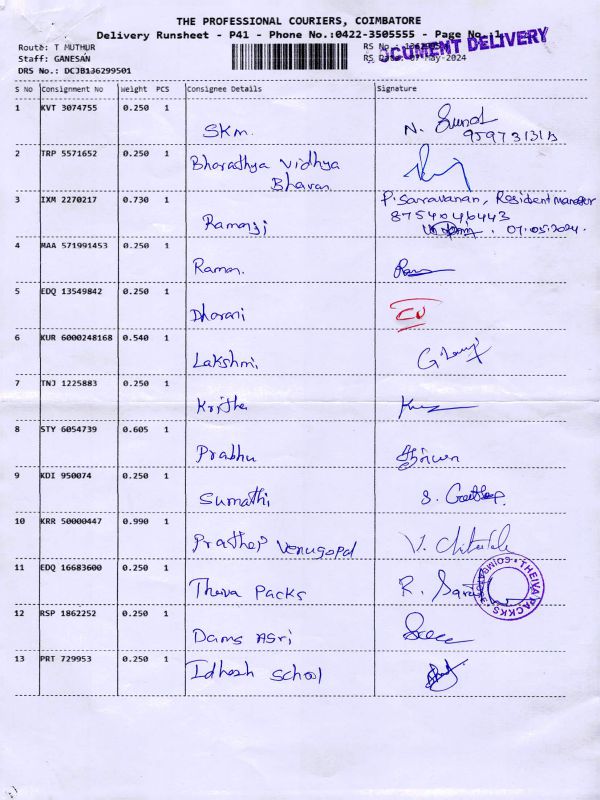 THE PROFESSIONAL COURIERS, COIMBATORE
Delivery Runsheet - P41 - Phone No.:0422-3505555 - Page No.:1
Route: T MUTHUR
Staff: GANESAN
DRS No.: DCJB136299501
RS No.:
RS Date: 07-May-2024
DOCUMENT DELIVERY
S No Consignment No Weight PCS Consignee Details Signature
1 KVT 3074755 0.250 1 SKM. N.
2 TRP 5571652 0.250 1 Bharathya Vidhya
Bhavan
3 IXM 2270217 0.730 1 Ramanji P. Saravanan, Resident manager
8754046443
07.05.2024.
4 MAA 571991453 0.250 1 Raman.
5 EDQ 13549842 0.250 1 Dharani
6 KUR 6000248168 0.540 1 Lakshmi
7 TNJ 1225883 0.250 1 Krithe
8 STY 6054739 0.605 1 Prabhu
9 KDI 950074 0.250 1 Sumathi S.
10 KRR 50000447 0.990 1 Prathep Venugopal V.
11 EDQ 16683600 0.250 1 Theiva Packs R.
THEIVA PACKKS COIMBATORE
12 RSP 1862252 0.250 1 Dams Agri
13 PRT 729953 0.250 1 Idhesh School